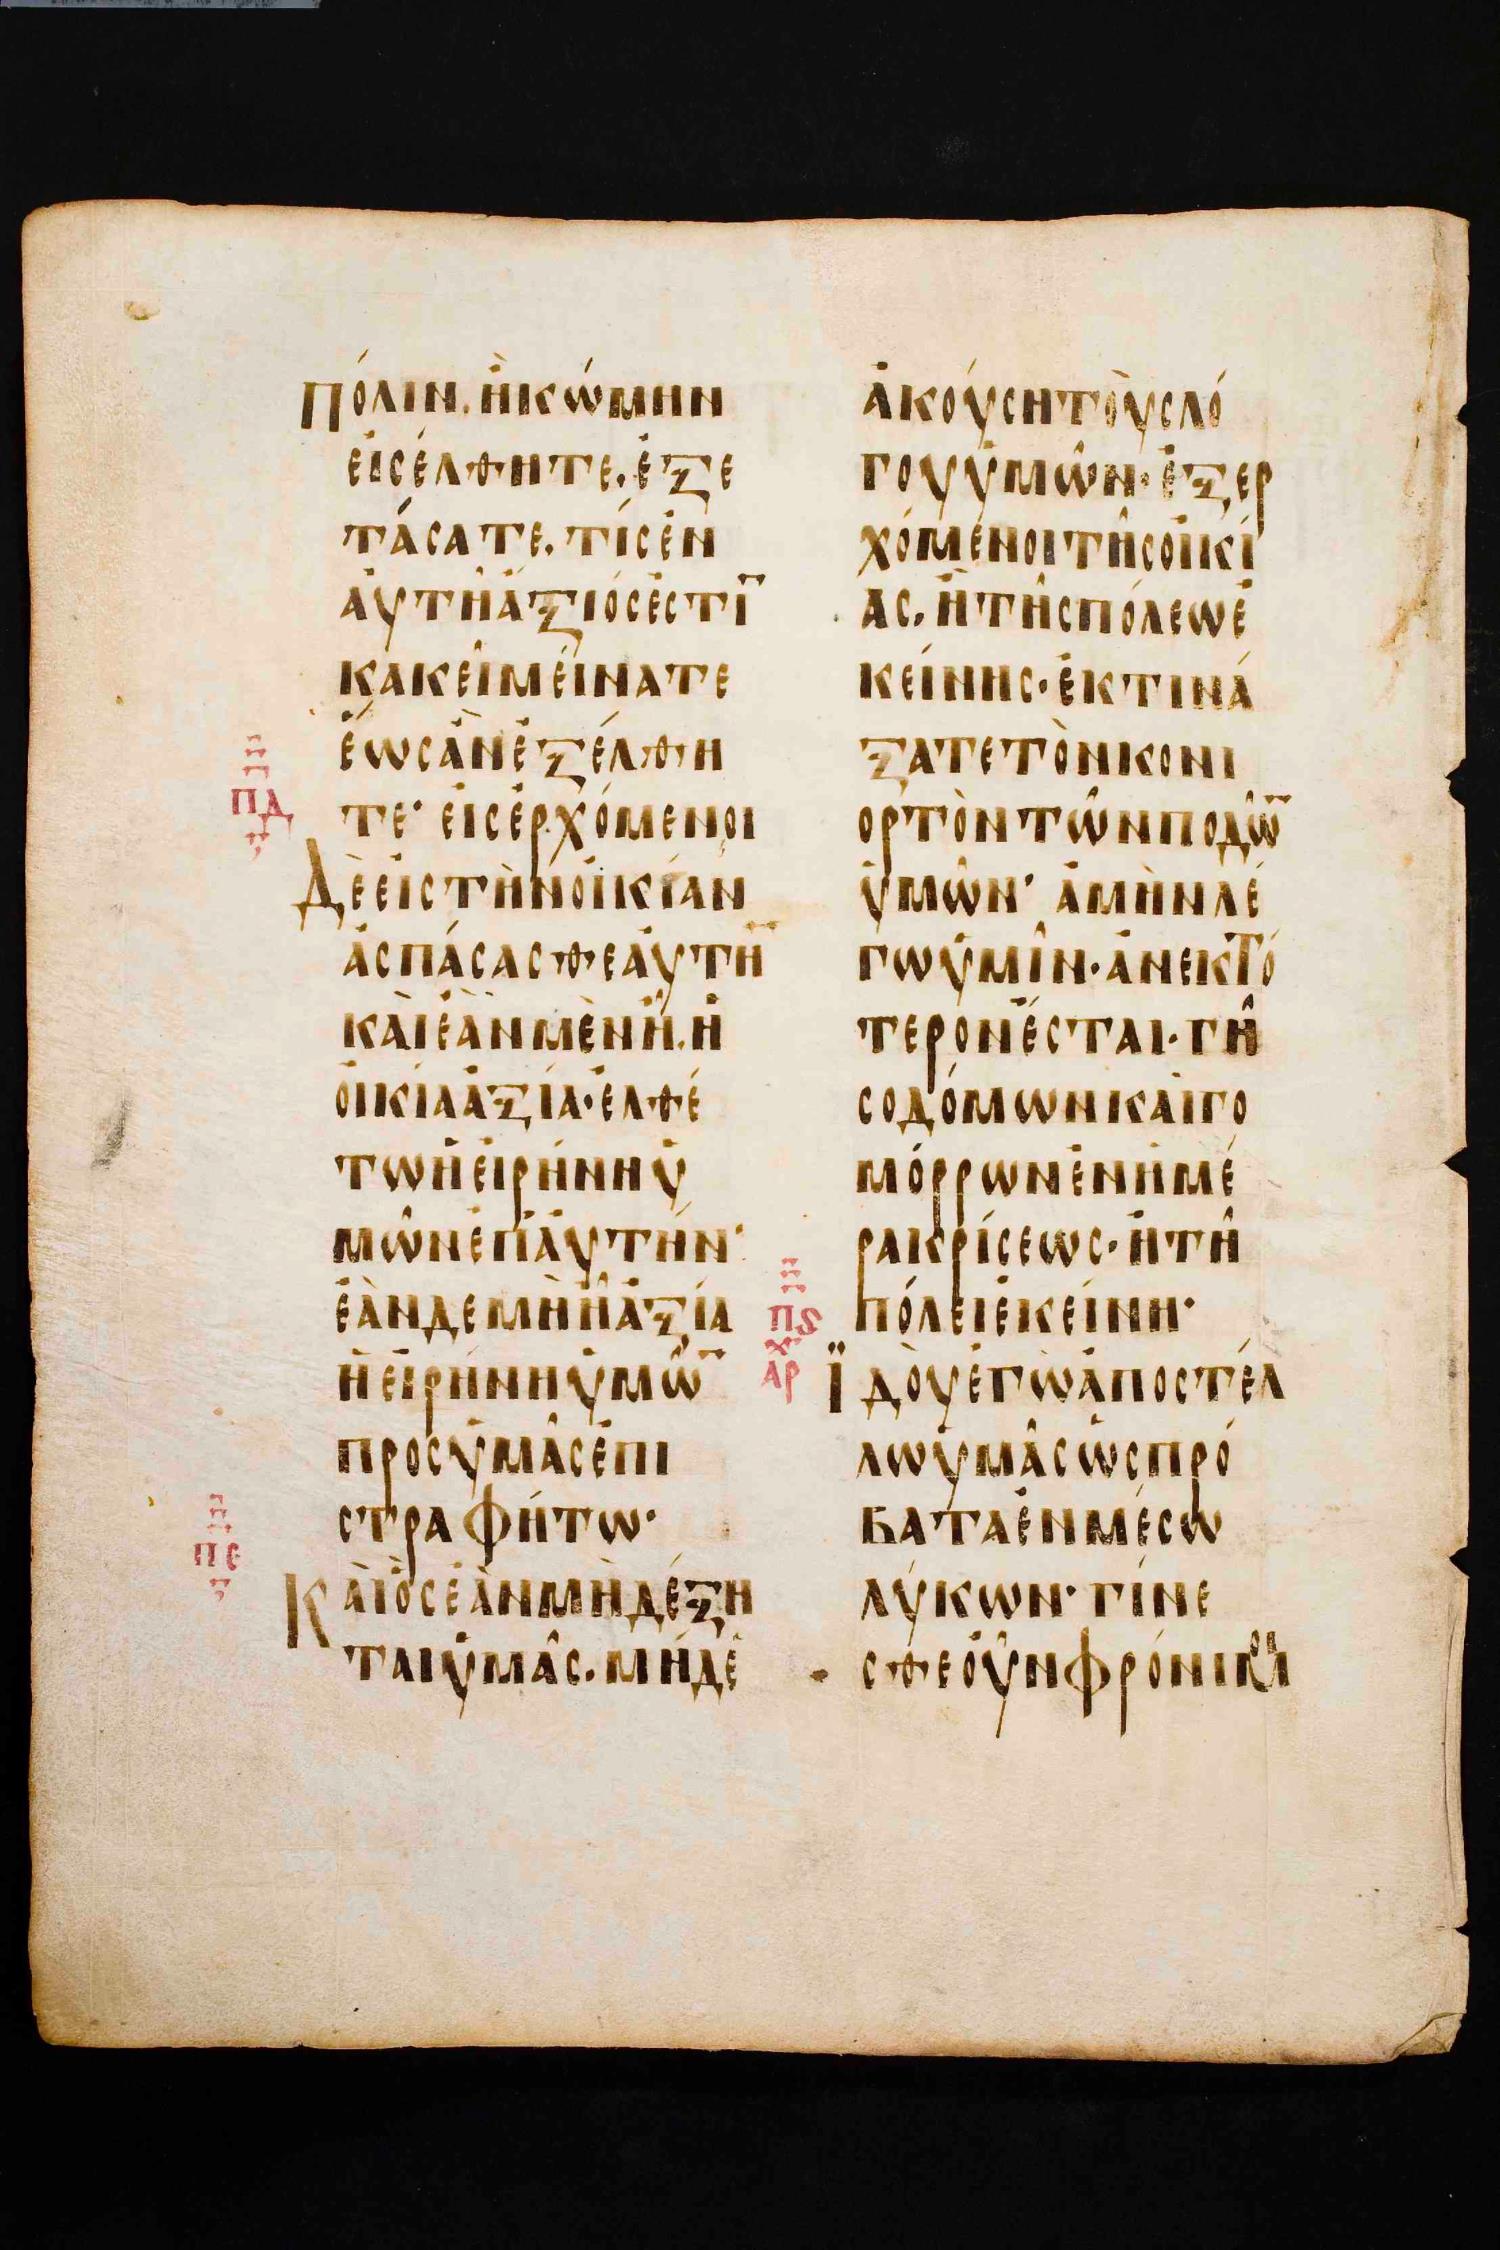 πόλιν. ἢ κώμην
εἰσέλθητε. ἐξε
τάσατε. τίς ἐν
ἀυτῆ ἄξιός ἐστῑ
κἀκεῖ μείνατε
ἕως ἂν ἐξέλθη
ΠΔ
τε· εἰσερχόμενοι
δὲ εἰς τὴν οἰκίαν
ἀσπάσασθε ἀυτὴ̄
κὰι ἐὰν μὲν ἦ. ἡ
οἰκία ἀξία· ἐλθέ
τω ἡ εἰρήνη ὑ
μῶν ἐπ ἀυτήν·
ἐὰν δε μὴ ἦ ἀξία
ἡ εἰρήνη ὑμῶ̄
προς ὑμᾶς ἐπι
στραφήτω·
ΠΕ
Κὰι ὃς ἐὰν μὴ δέξη
ται ὑμᾶς. μήδὲ
ἀκούση τὸυς λό
γους ὑμῶν· ἐξερ
χόμενοι τῆς οἰκί
ας. ἢ τῆς πόλεως ἐ
κείνης· ἐκτινά
ξατε τὸν κονι
ορτὸν τῶν ποδῶ̄
ὑμῶν· ἀμὴν λέ
γω ὑμῖν· ἀνεκτό
τερον ἔσται· γῆ
σοδόμων κὰι γο
μόρρων ἐν ἡμέ
ρα κρίσεως· ἢ τῆ
πόλει ἐκείνη·
ΠϚ
ΑΡ
Ϊδὸυ ἐγὼ ἀποστέλ
λω ὑμᾶς ὡς πρό
βατα ἐν μέσω
λύκων· γίνε
σθε ὀῦν φρόνι